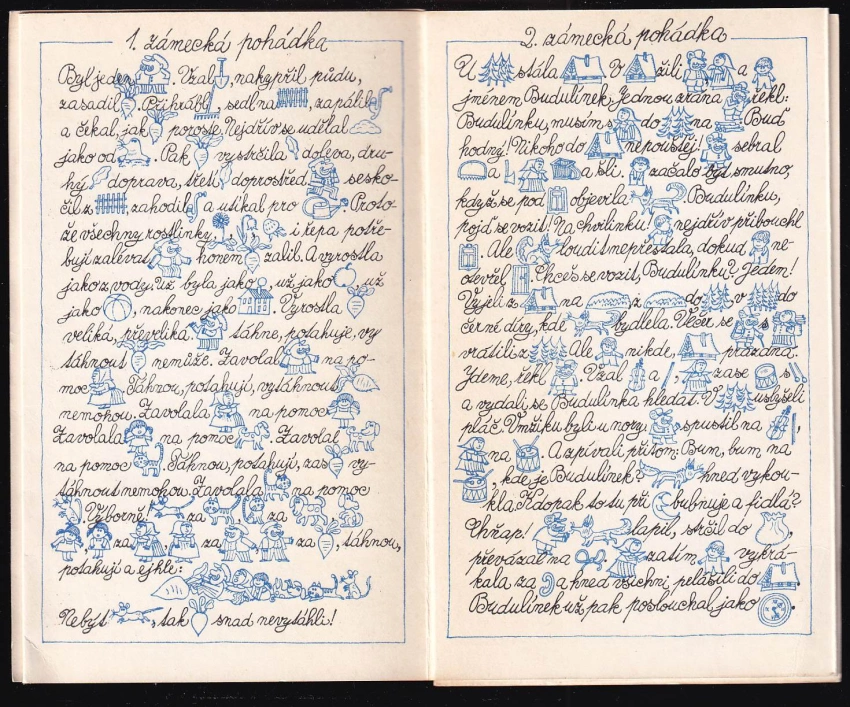 1. zámecká pohádka
Byl jeden . Vzal , nakypřil půdu,
zasadil . Přihrábl , sedl na , zapálil
a čekal, jak poroste. Nejdřív se udělal
jako od . Pak vystrčila doleva, dru-
hý doprava, třetí doprostřed . sesko-
čil z , zahodil a utíkal pro . Proto-
že všechny rostlinky, , , i řepa potře-
bují zalévat, honem zalil. A vyrostla
jako z vody. Už byla jako , už jako , už
jako , nakonec jako . Vyrostla
veliká, převeliká. táhne, potahuje, vy
táhnout nemůže. Zavolal na po-
moc . Táhnou, potahují, vytáhnout
nemohou. Zavolala na pomoc .
Zavolala na pomoc . Zavolal
na pomoc . Táhnou, potahují, zas vy-
táhnout nemohou. Zavolala na pomoc
. Výborně! za , za
, za , za za , táhnou,
potahují a ejhle:
Nebýt , tak snad nevytáhli!
2. zámecká pohádka
U stála . V žili , a
jménem Budulínek. Jednou zrána řekl:
Budulínku, musím s do na . Buď
hodný! Nikoho do nepouštěj! sebral
a , a šli. začalo být smutno,
když se pod objevila . Budulínku,
pojď se vozit! Na chvilinku! nejdřív přibouchl
. Ale loudit nepřestala, dokud ne-
otevřel . Chceš se vozit, Budulínku? Jedem!
Vyjeli z na , z do , v do
černé díry, kde bydlela. Večer se s
vrátili z . Ale nikde, prázdná.
Jdeme, řekl . Vzal a , zase s
a vydali se Budulínka hledat. V uslyšeli
pláč. V mžiku byli u nory. spustil na ,
na . A zpívali přitom: Bum, bum na
, kde je Budulínek? hned vykou-
kla. Kdopak to tu při bubnuje a fidlá?
Chňap! lapil, strčil do ,
převázal na , zatím vykrá-
kala za a hned všichni pelášili do .
Budulínek už pak poslouchal jako .